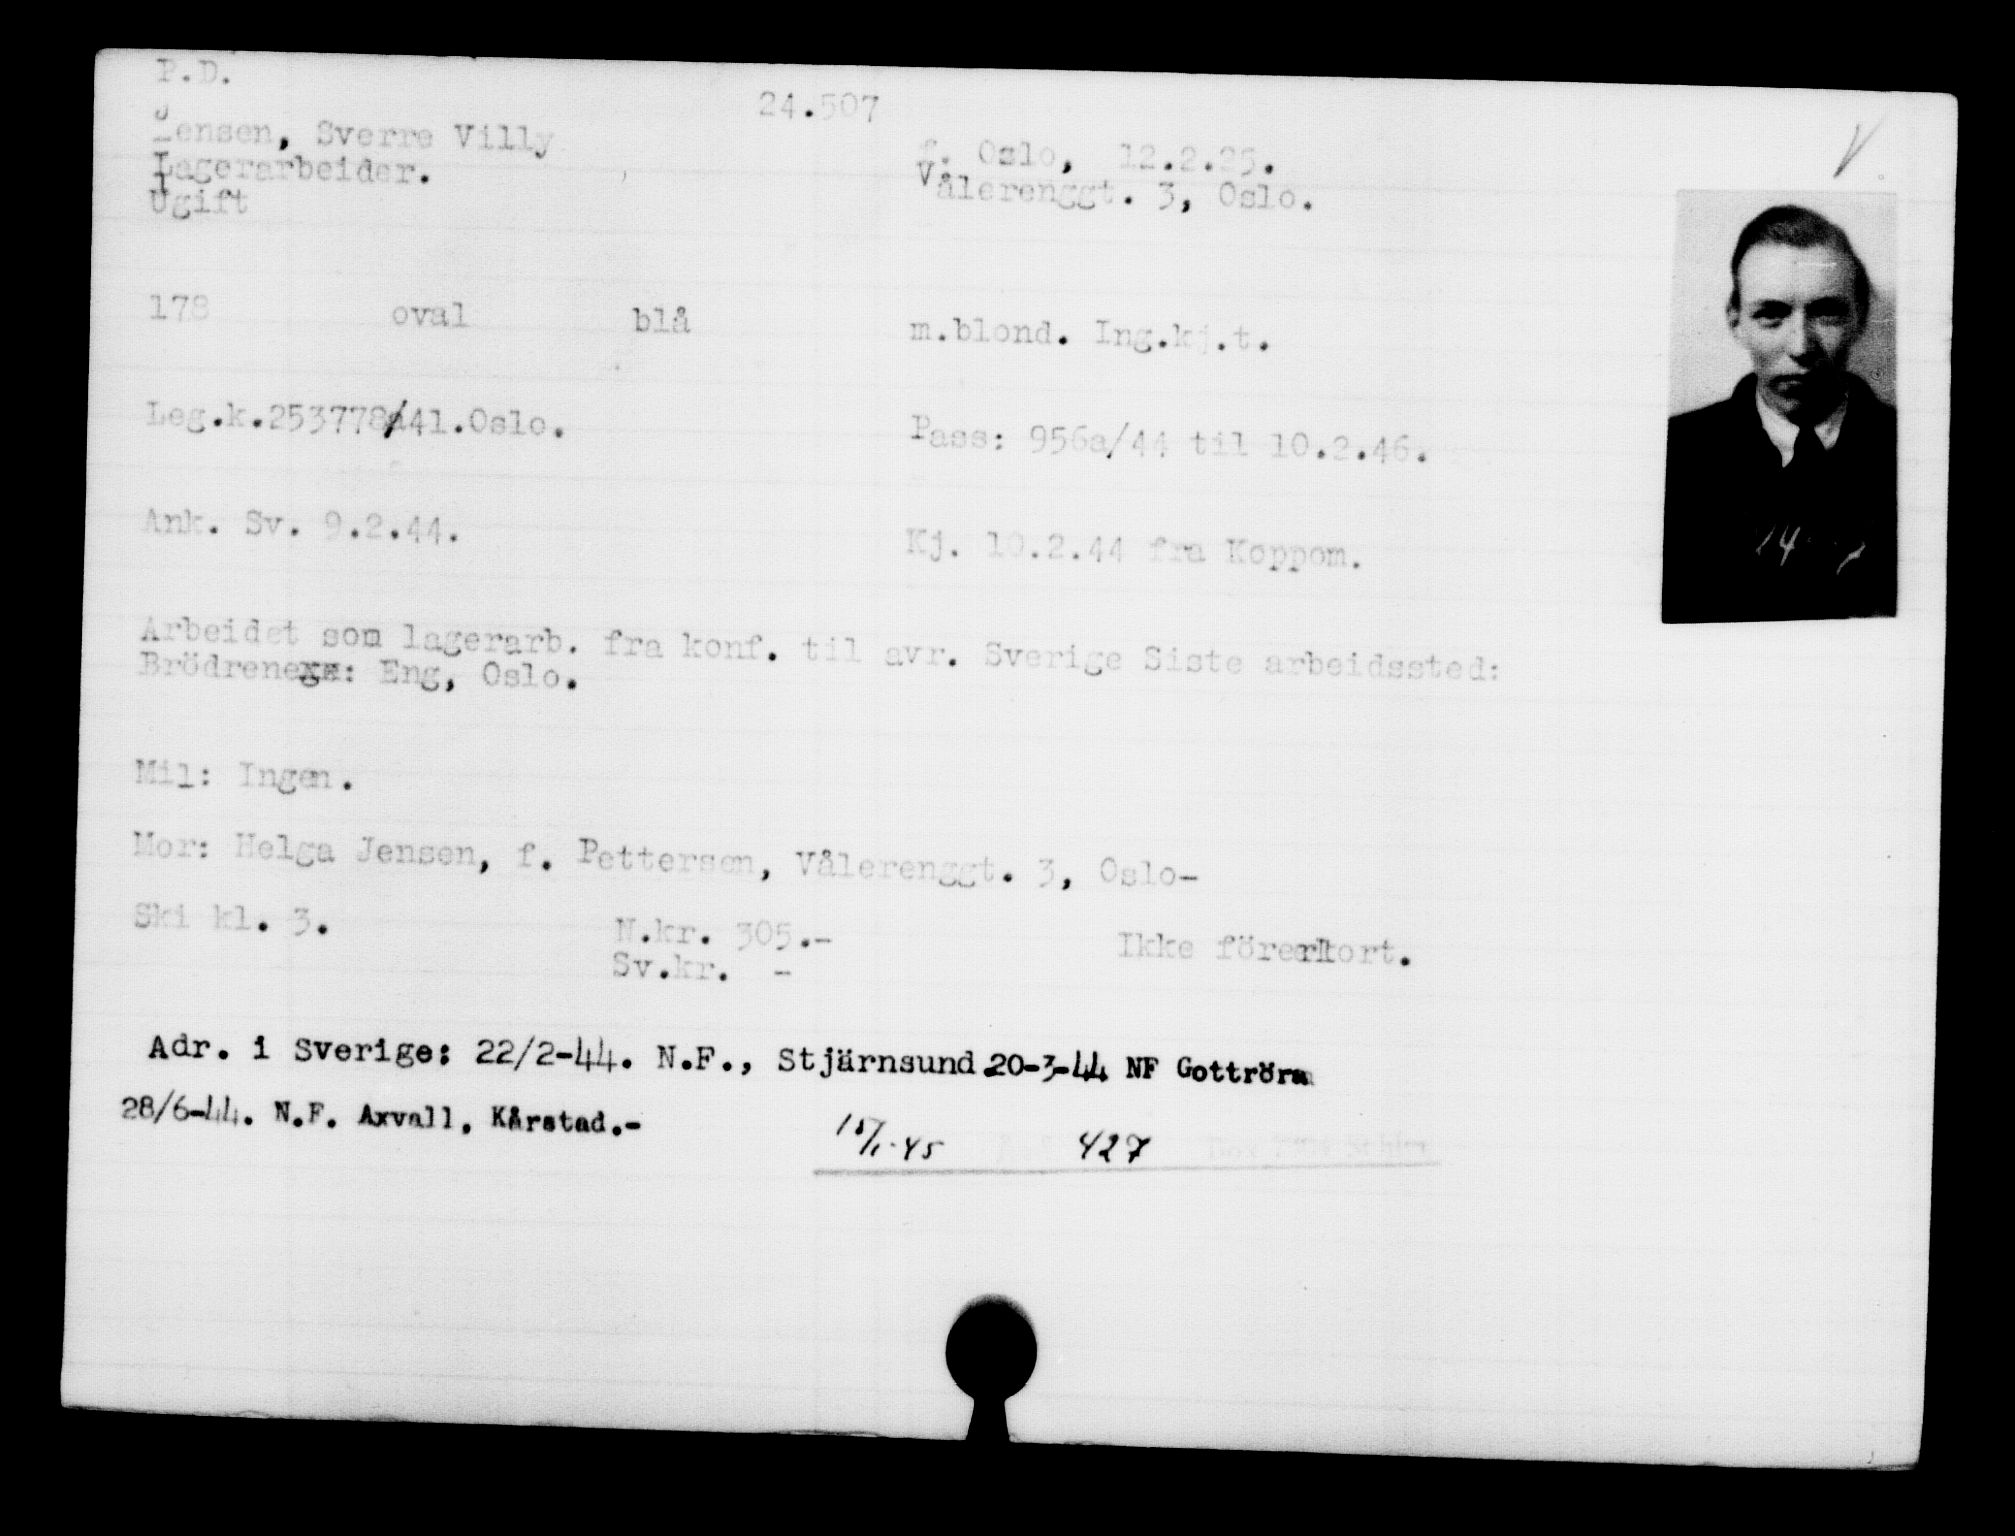 P.D.
24.507
Jensen, Sverre Villy
f. Oslo, 12.2.25.
Lagerarbeider.
Vålerenggt. 3, Oslo.
Ugift
178 oval blå m.blond. Ing.kj.t.
Leg.k.253778/41.Oslo.
Pass: 956a/44 til 10.2.46.
Ank. Sv. 9.2.44.
Kj. 10.2.44 fra Koppom.
Arbeidet som lagerarb. fra konf. til avr. Sverige Siste arbeidssted:
Brödrene: Eng, Oslo.
Mil: Ingen.
Mor: Helga Jensen, f. Pettersen, Vålerenggt. 3, Oslo-
Ski kl. 3.
N.kr. 305.-
Ikke förerkort.
Sv.kr. -
Adr. i Sverige: 22/2-44. N.F., Stjärnsund 20-3-44 NF Gottröra
28/6-44. N.F. Axvall, Kårstad.-
15/1-45 427